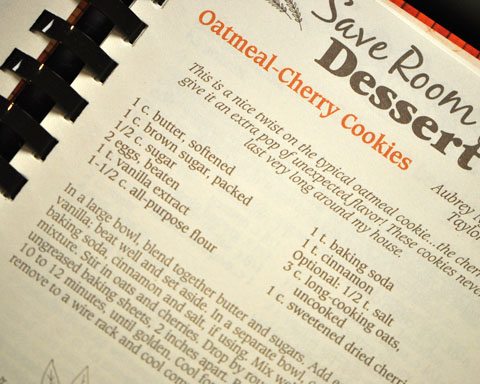 Save Room
Dessert
Oatmeal-Cherry Cookies
Aubrey
Taylor
This is a nice twist on the typical oatmeal cookie...the cherries
give it an extra pop of unexpected flavor. These cookies never
last very long around my house.
1 c. butter, softened
1 c. brown sugar, packed
1/2 c. sugar
2 eggs, beaten
1 t. vanilla extract
1-1/2 c. all-purpose flour
1 t. baking soda
1 t. cinnamon
Optional: 1/2 t. salt
3 c. long-cooking oats,
uncooked
1 c. sweetened dried cherr
In a large bowl, blend together butter and sugars. Add e
vanilla; beat well and set aside. In a separate bowl,
baking soda, cinnamon and salt, if using. Mix we
mixture. Stir in oats and cherries. Drop by rou
ungreased baking sheets, 2 inches apart. B
10 to 12 minutes, until golden. Cool fo
remove to a wire rack and cool com